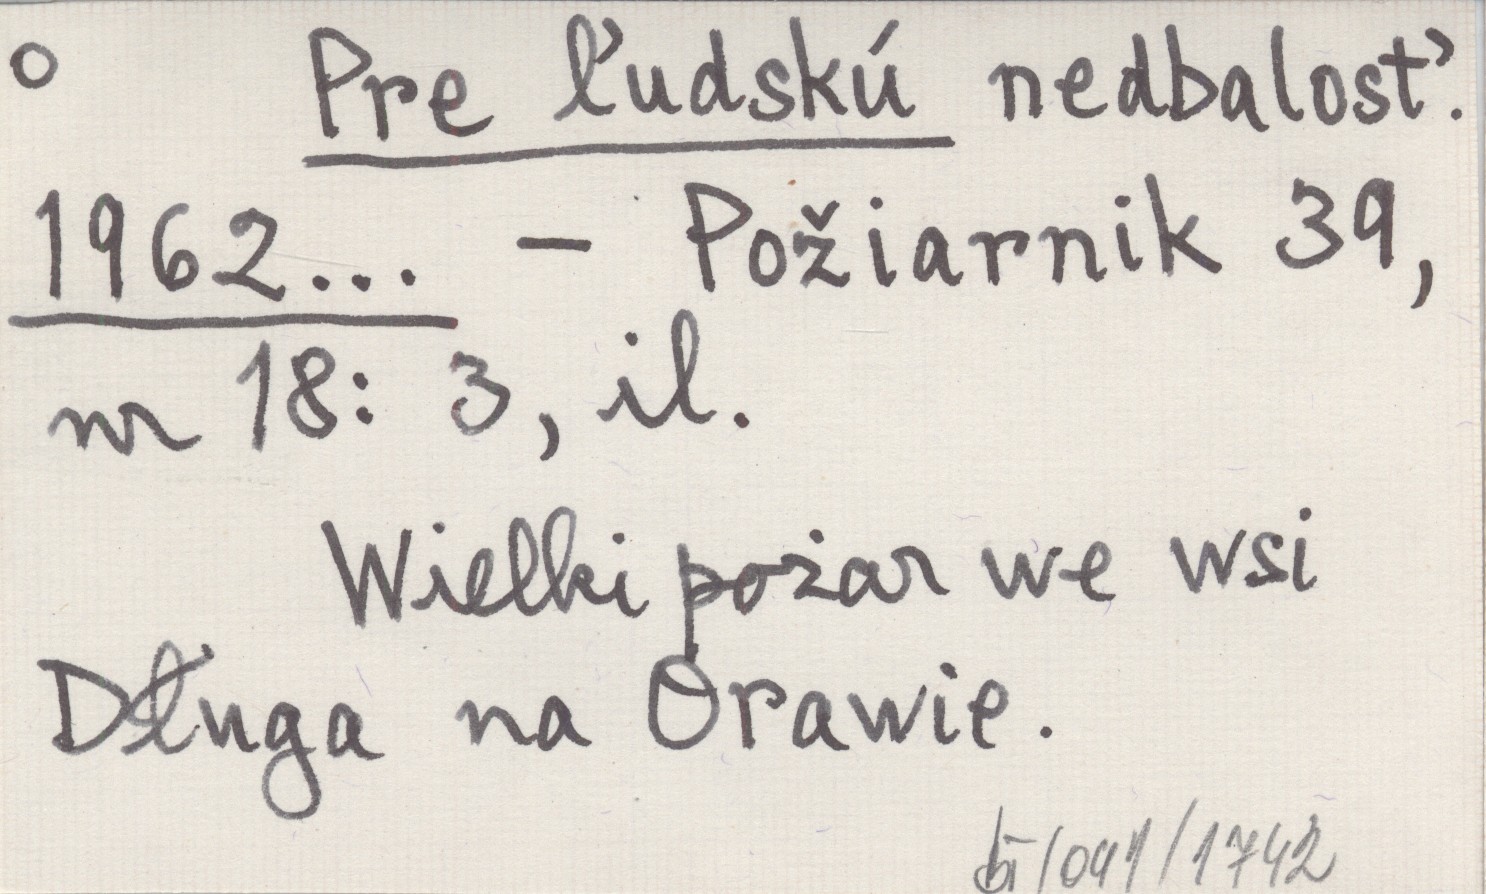 o Pre ľudskú nedbalosť.
1962... - Požiarnik 39,
nr 18: 3, il.
Wielki pożar we wsi
Długa na Orawie.
/041/1742